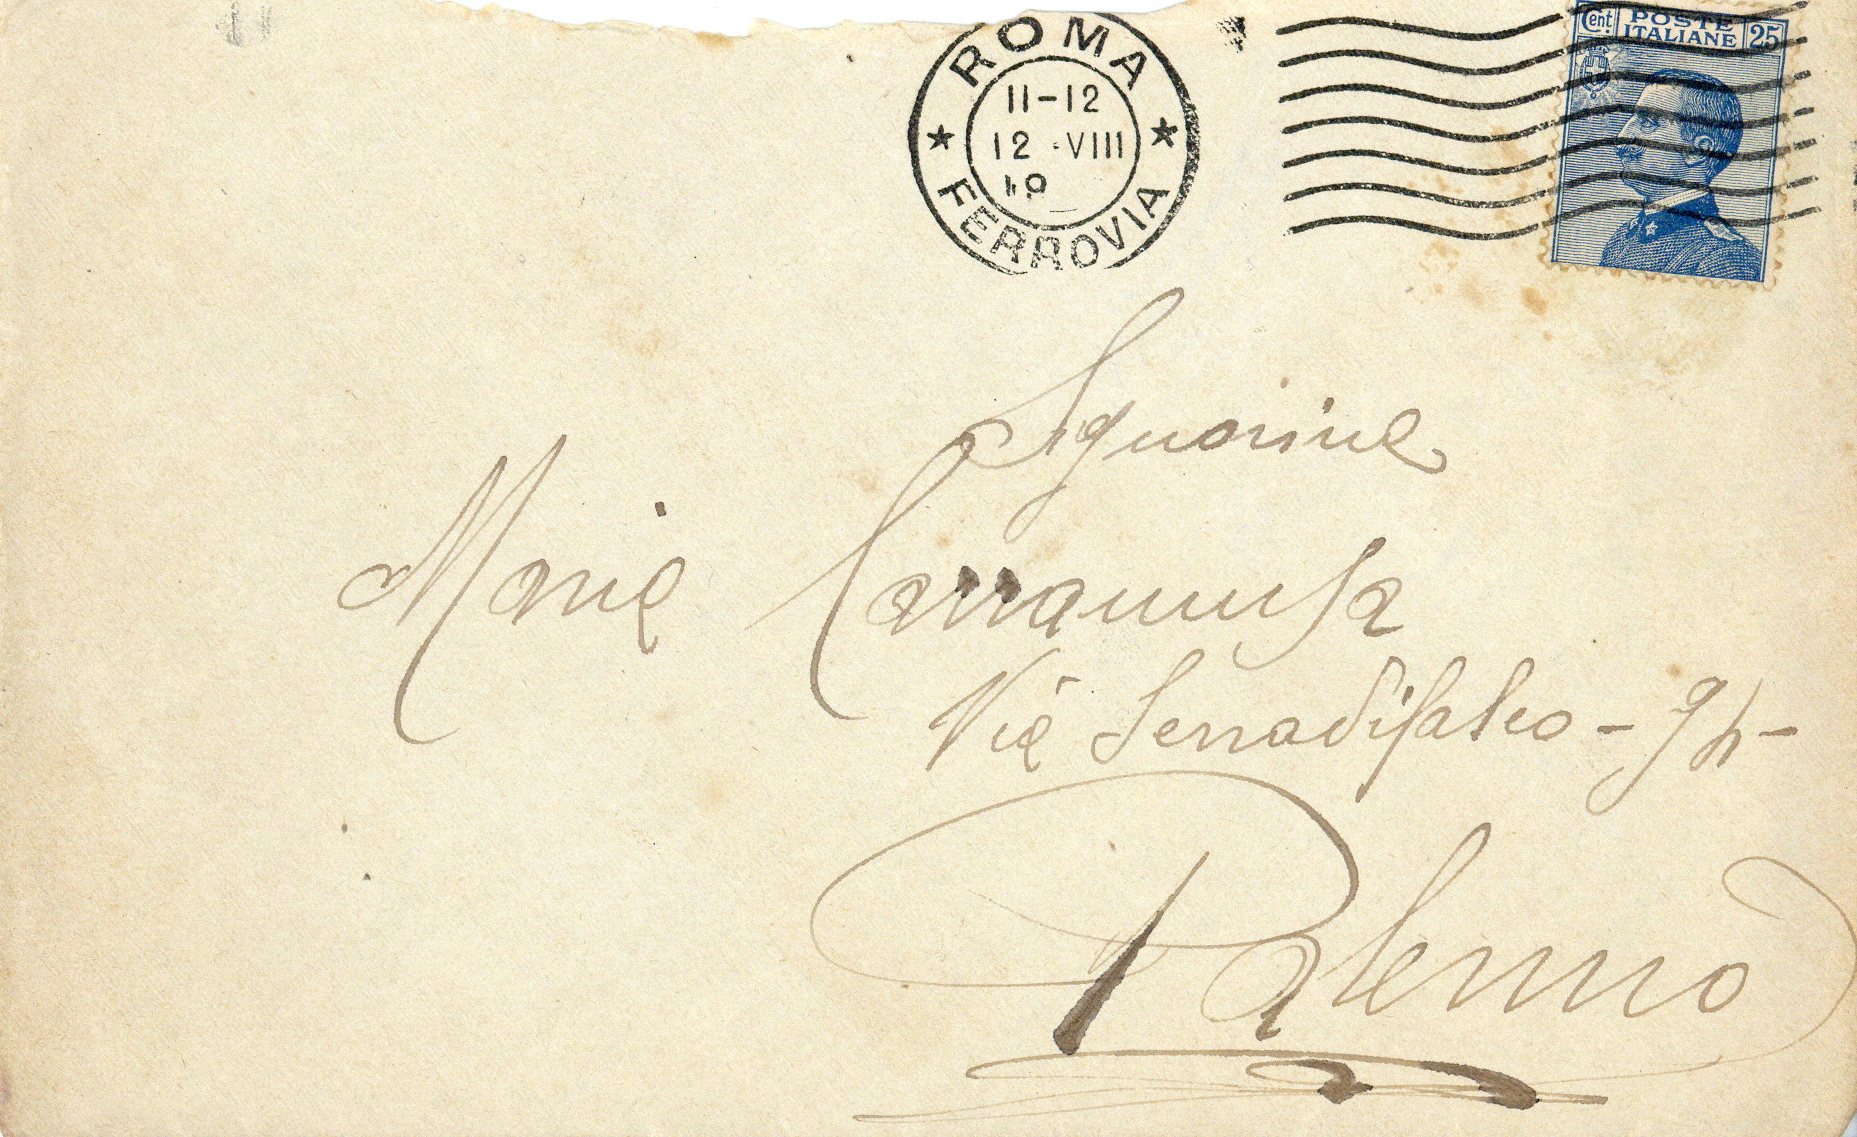 ROMA
11-12
12 · VIII
FERROVIA
Cent. POSTE ITALIANE 25
Signorina
Maria Carramusa
Via Serradifalco - 94 -
Palermo